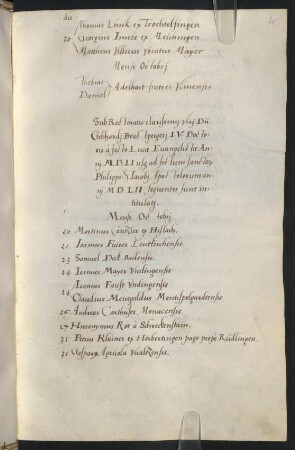 die
Thomas Linck ex Trochtelfingen
20 Georgius Imele ex Meichingen
Matthæus Villicus vocatus Mayer
Mense Octobrj
Thobias
Daniel Adelhart fratres Vimenses
Sub Rectoratu clarissimj virj Dn̄
Gebhardj Brast I. V. Docto
ris à festo Lucæ Euangelistæ An
nj M.D.LI usq ad festum sanctor
Philippj & Iacobj Apostolorum an
nj M.D.LII sequentes sunt in
titulatj.
Mense Octobrj
20 Martinus Cantzler ex Hislach.
21 Ioannes Fixere Leuttkirchensis
23 Samuel Deck Basilensis.
24 Ioannes Mayer Vndingensis
Ioannes Faust Vndingensis
24 Claudius Mengaldus Montispelgardensis
26 Andreas Carthuser Monacensis
27 Hieronymus Rot à Schreckenstain.
31 Petrus Kleiner ex Herbertingen pago prope Rudlingen.
31 Gaspar Agricola